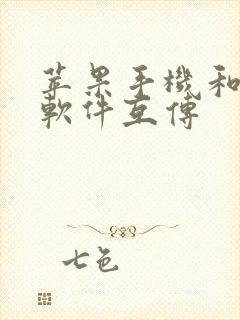 苹果手機和
軟件互傳
七色